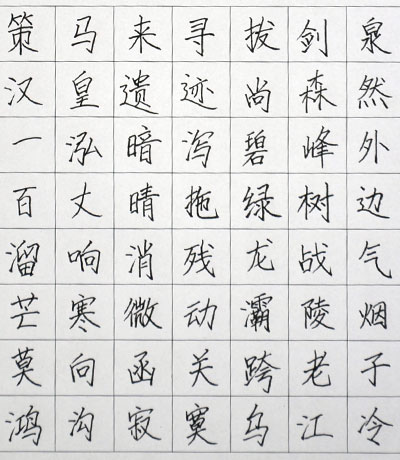 策马来寻拔剑泉
汉皇遗迹尚森然
一泓暗泻碧峰外
百丈晴拖绿树边
溜响消残龙战气
芒寒微动灞陵烟
莫向函关跨老子
鸿沟寂寞乌江冷